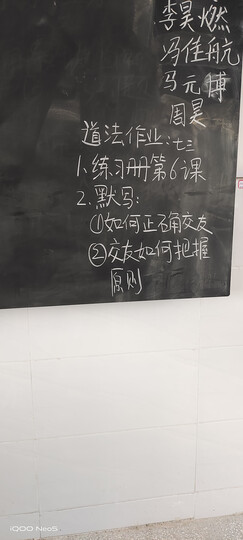 李昊燃
冯佳航
马元博
周昊
道法作业:七三
1、练习册第6课
2.默写:
①如何正确交友
②交友如何把握
原则
iQOO Neo5